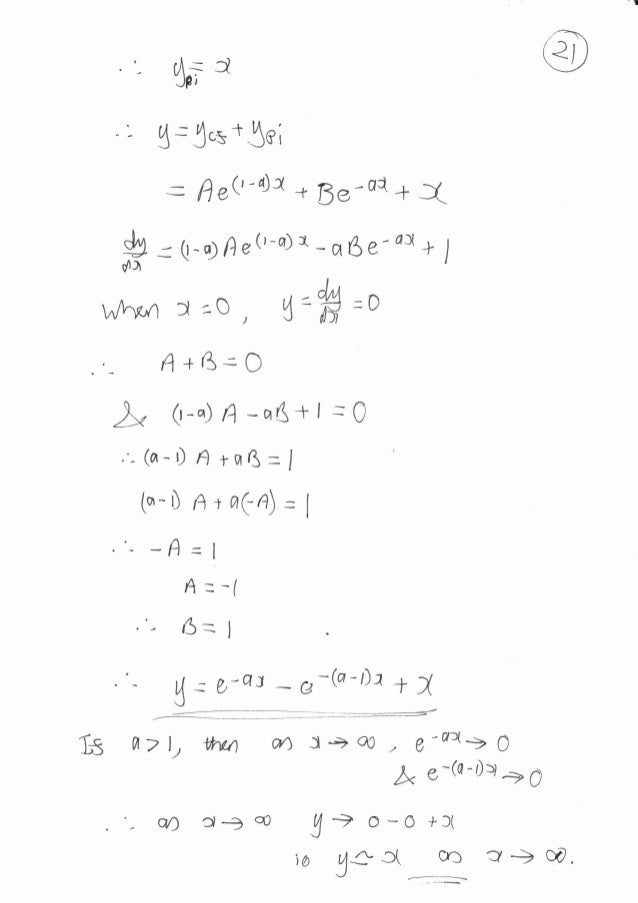 21
∴ y_pi = x
∴ y = y_cs + y_pi
= Ae^(1-a)x + Be^-ax + x
dy/dx = (1-a)Ae^(1-a)x - aBe^-ax + 1
When x = 0, y = dy/dx = 0
∴ A + B = 0
& (1-a) A - aB + 1 = 0
∴ (a-1) A + aB = 1
(a-1) A + a(-A) = 1
∴ -A = 1
A = -1
∴ B = 1
∴ y = e^-ax - e^-(a-1)x + x
If a > 1, then as x → ∞, e^-ax → 0
& e^-(a-1)x → 0
∴ as x → ∞ y → 0 - 0 + x
ie y ≃ x as x → ∞.